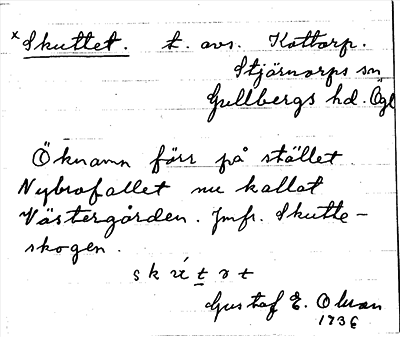 x Skuttet. t. avs. Kottorp.
Stjärnorps sn
Gullbergs hd. Ögl
Öknamn förr på stället
Nybrofallet nu kallat
Västergården. Jmfr. Skutte-
skogen.
skútət
Gustaf E. Olsson
1736